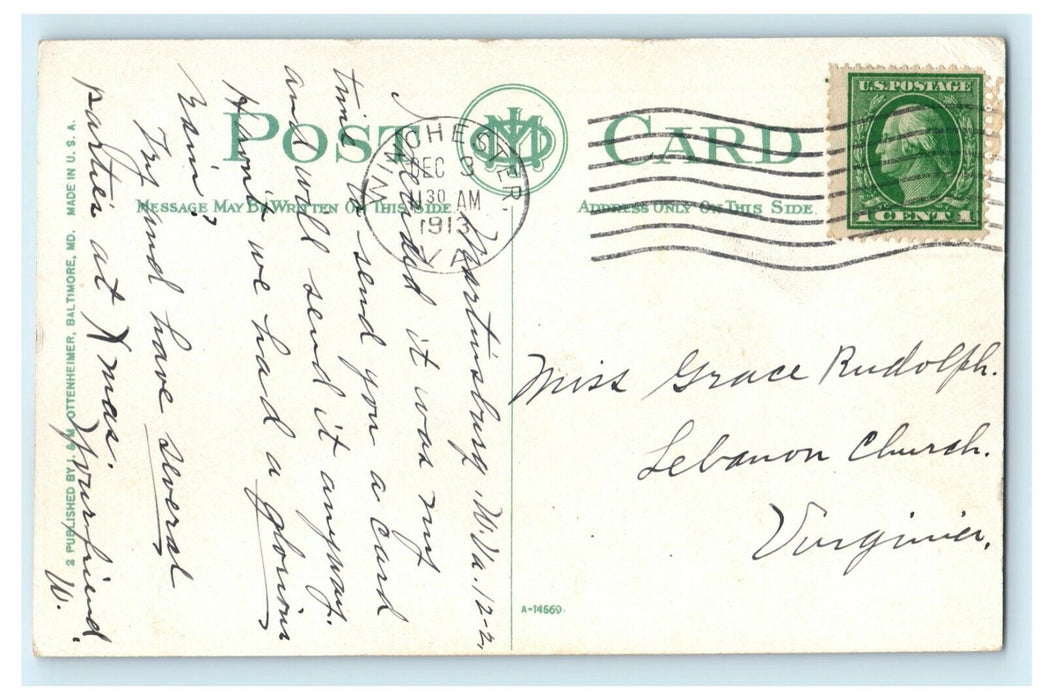 POST CARD
MESSAGE MAY BE WRITTEN ON THIS SIDE
ADDRESS ONLY ON THIS SIDE
WINCHESTER,
DEC 3
11 30 AM
1913
VA
U.S. POSTAGE
1 CENT 1
Martinsburg, W. Va. 12-2,
I decided it was my
time to send you a card
and will send it anyway.
Haven't we had a glorious
rain?
Try and have several
parties at Xmas. Your friend
W.
Miss Grace Rudolph.
Lebanon Church.
Virginia.
2 PUBLISHED BY I. & M. OTTENHEIMER, BALTIMORE, MD. MADE IN U. S. A.
A-14569